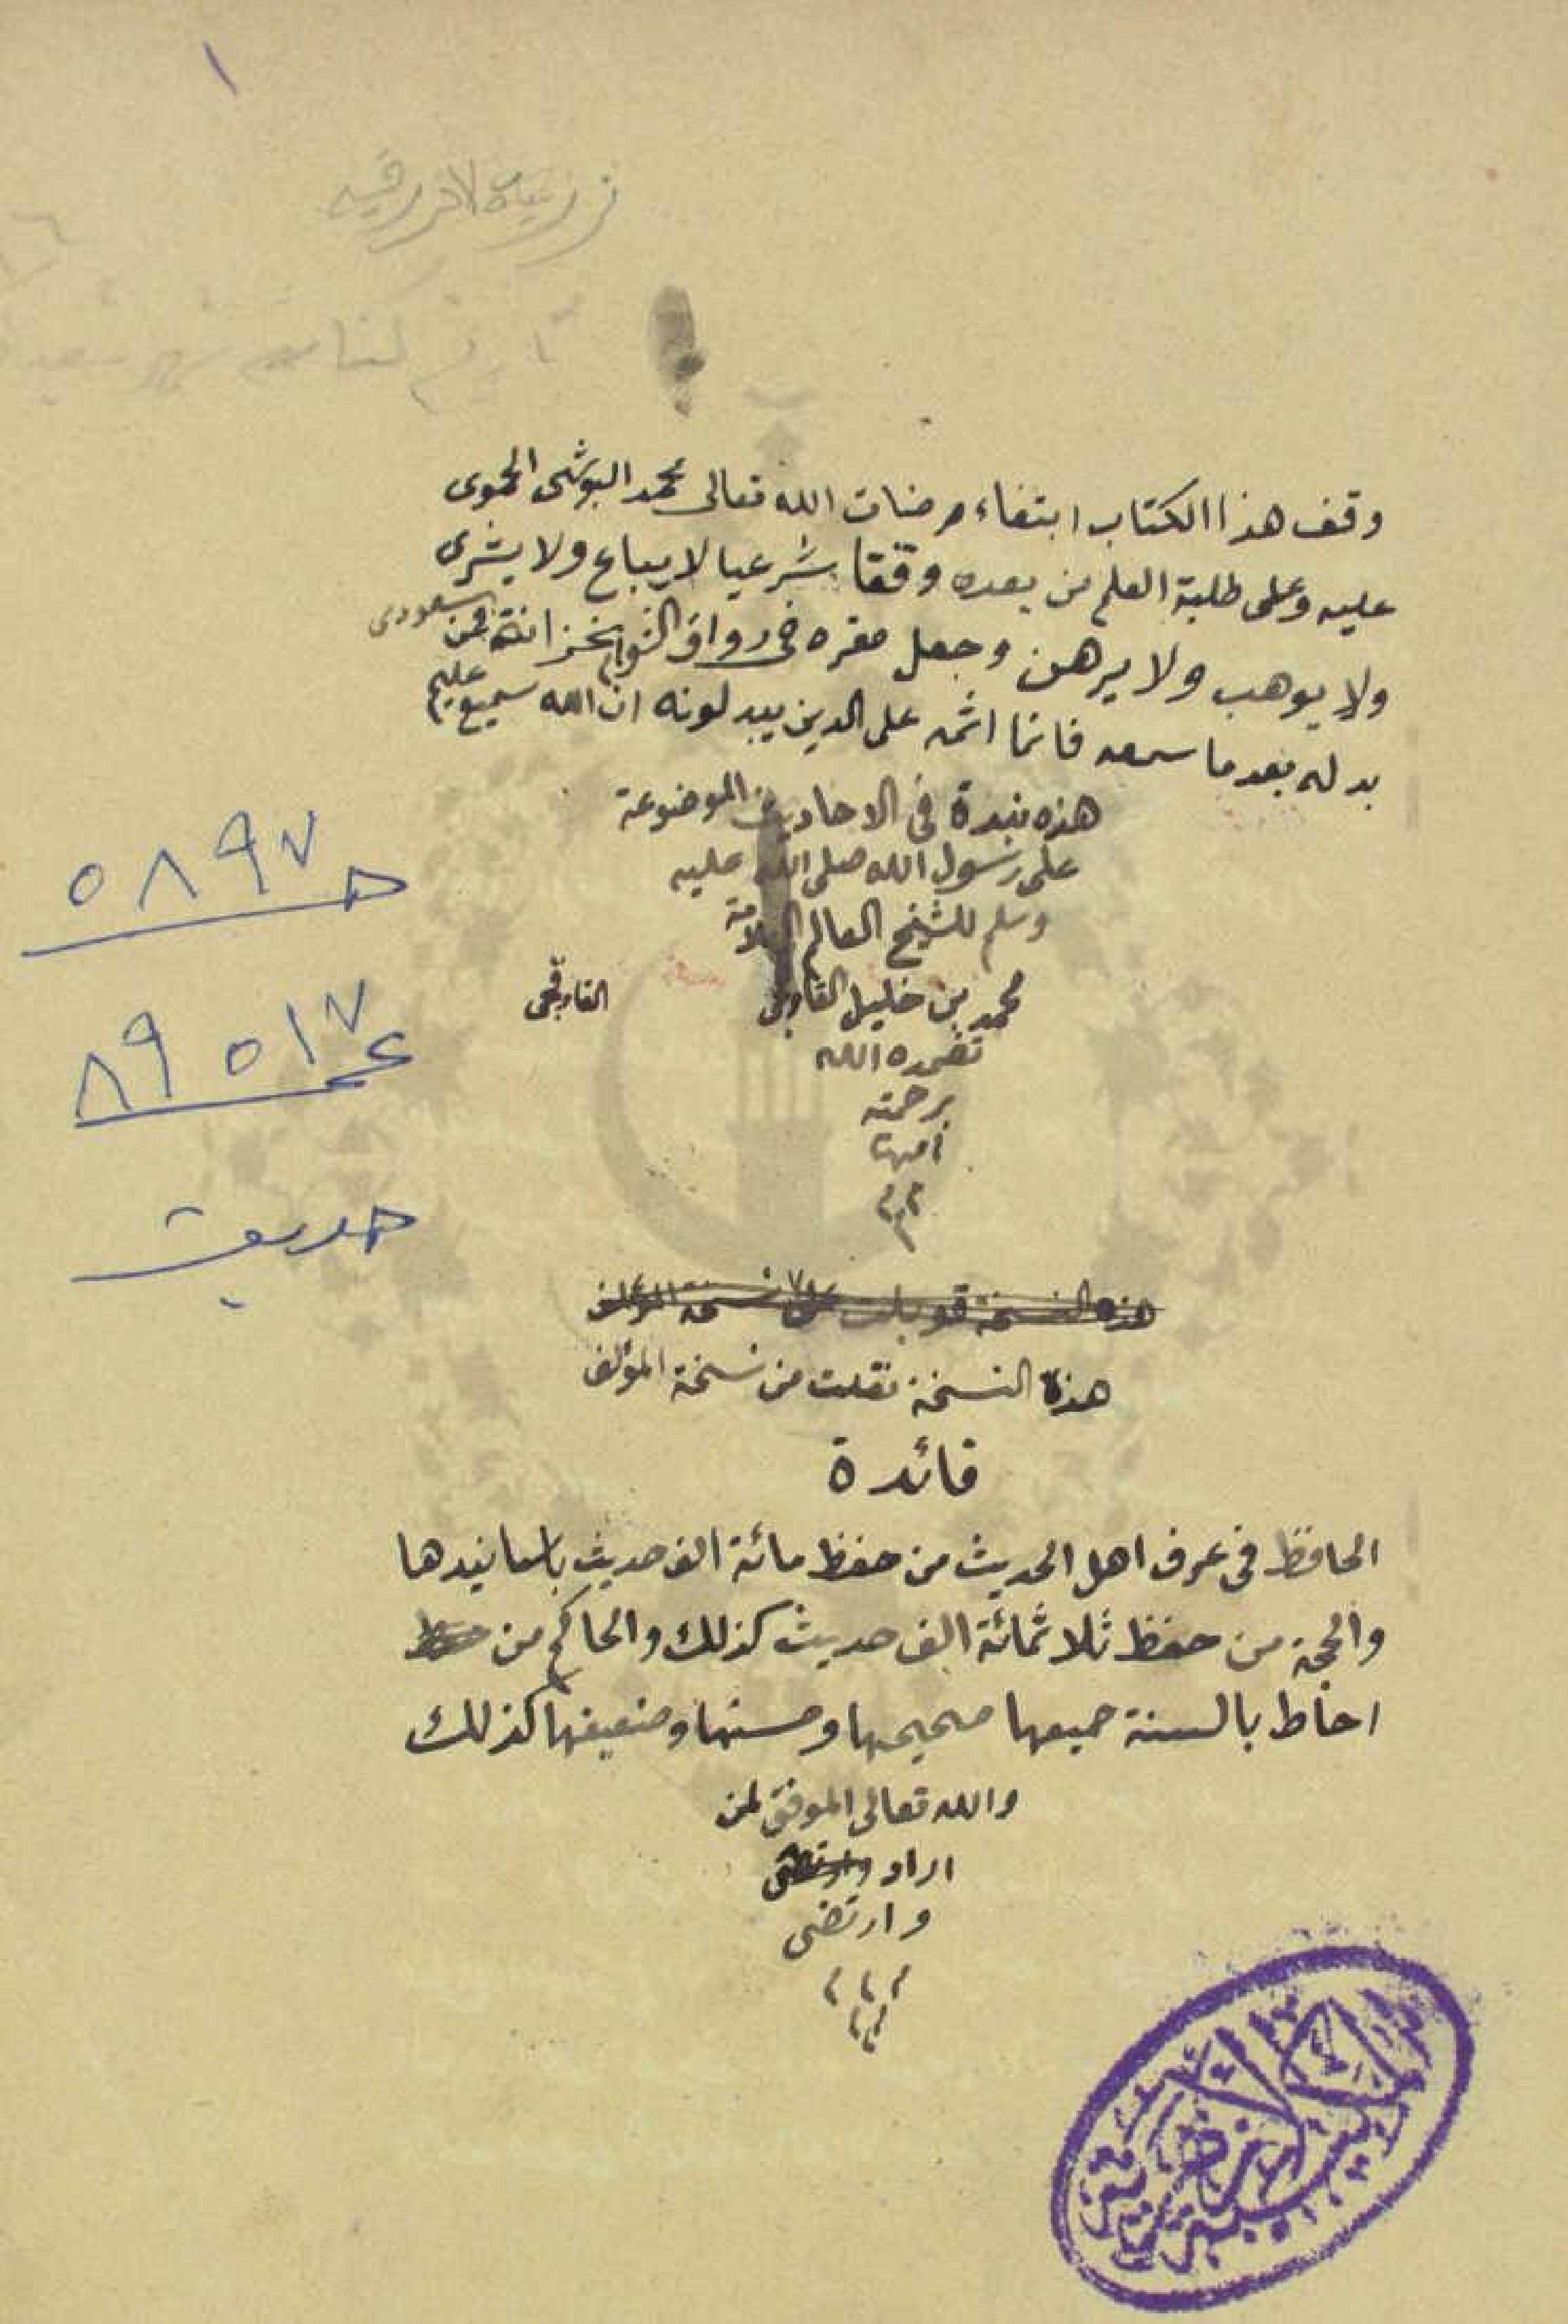 ١
وقف هذا الكتاب ابتغاء مرضات الله تعالى محمد البوشى الحموى
عليه وعلى طلبة العلم من بعده وقفا شرعيا لا يباع ولا يشرى
ولا يوهب ولا يرهن وجعل مقره فى رواق الشوام بخزانة فمن
بدله بعد ما سمعه فانما اثمه على الذين يبدلونه ان الله سميع عليم
هذه نبذة فى الاحاديث الموضوعة
على رسول الله صلى الله عليه
وسلم للشيخ العالم العلامة
محمد بن خليل القاوقجى
القاوقجى
تغمده الله
برحمته
امين
حـ ٥٨٩٧
عـ ٨٩٥١٧
حديث
هذه النسخة قوبلت على نسخة المؤلف
هذه النسخة نقلت من نسخة المؤلف
فائدة
الحافظ فى عرف اهل الحديث من حفظ مائة الف حديث باسانيدها
والحجة من حفظ ثلاثمائة الف حديث كذلك والحاكم من حفظ
احاط بالسنة جميعها صحيحها وحسنها وضعيفها كذلك
والله تعالى الموفق لمن
اراد وارتضى
وارتضى